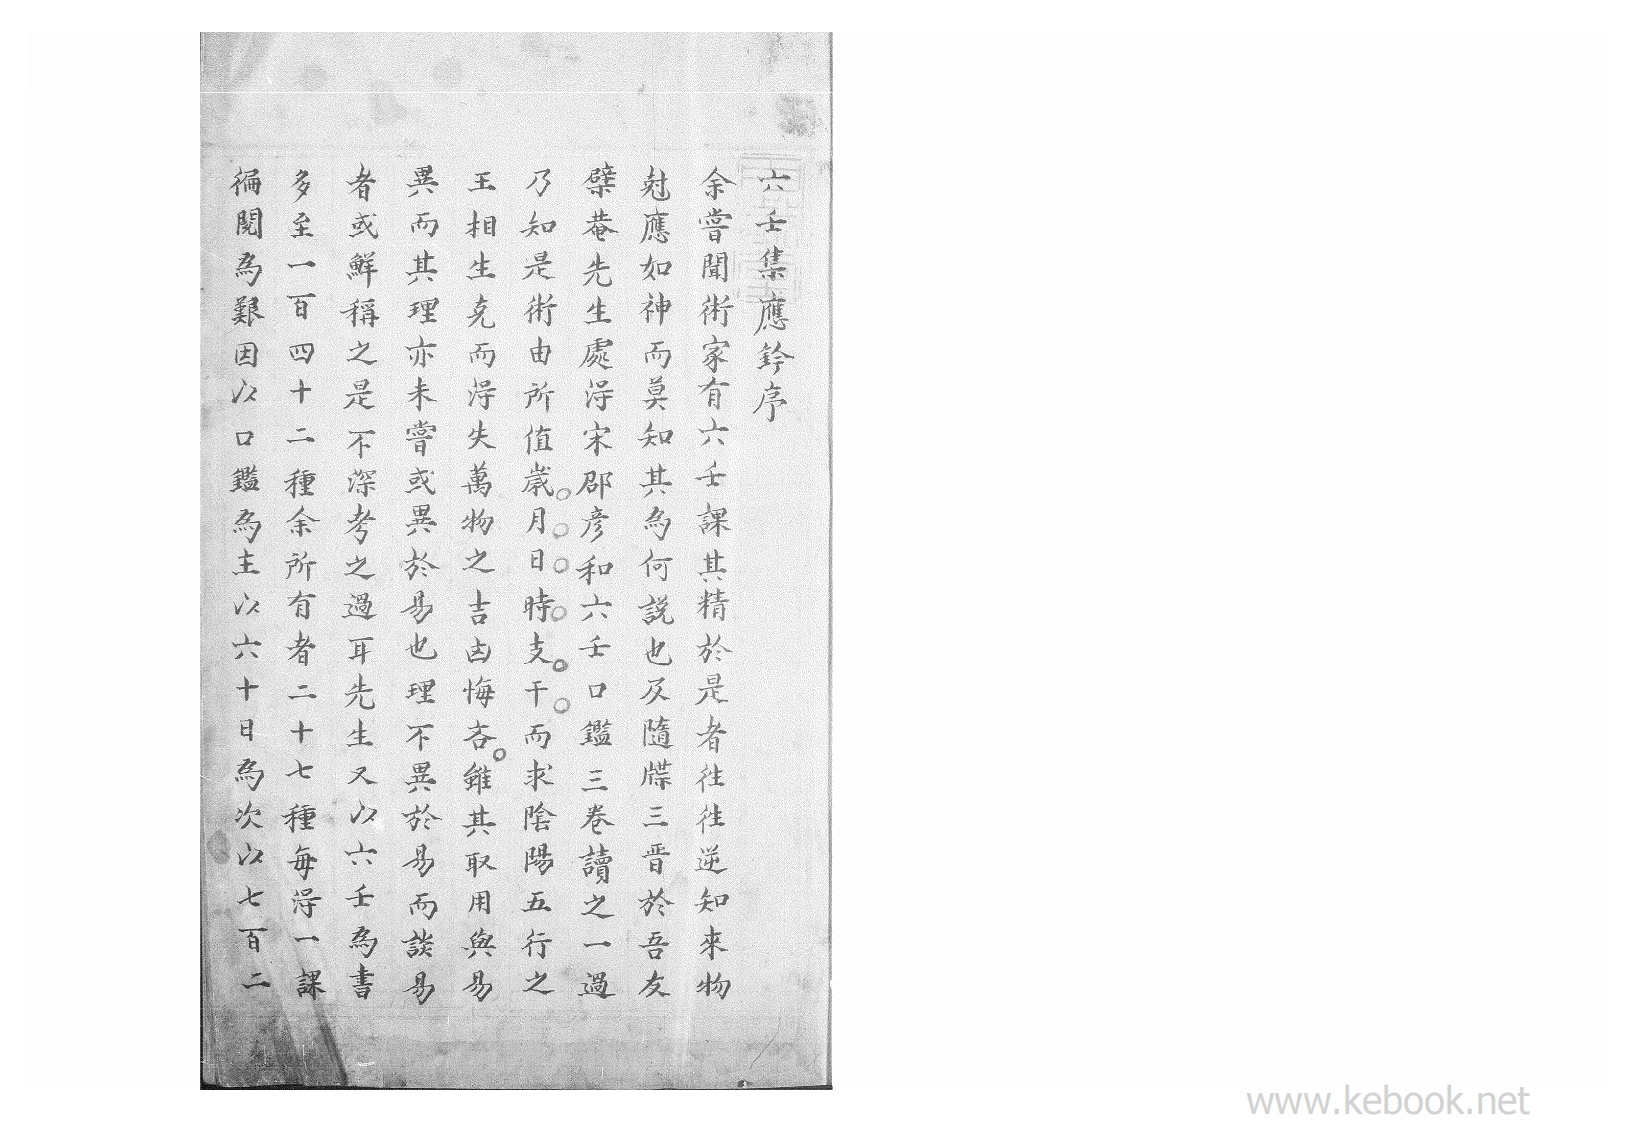 六壬集應鈐序
余嘗聞術家有六壬課其精於是者往往逆知來物
尅應如神而莫知其為何説也及隨牒三晋於吾友
檗菴先生處淂宋邵彦和六壬口鑑三卷讀之一過
乃知是術由所值歲月日時支干而求陰陽五行之
王相生克而淂失萬物之吉凶悔吝雖其取用與易
異而其理亦未嘗或異於易也理不異於易而談易
者或鮮稱之是不深考之過耳先生又以六壬為書
多至一百四十二種余所有者二十七種每淂一課
徧閲為艱因以口鑑為主以六十日為次以七百二
www.kebook.net